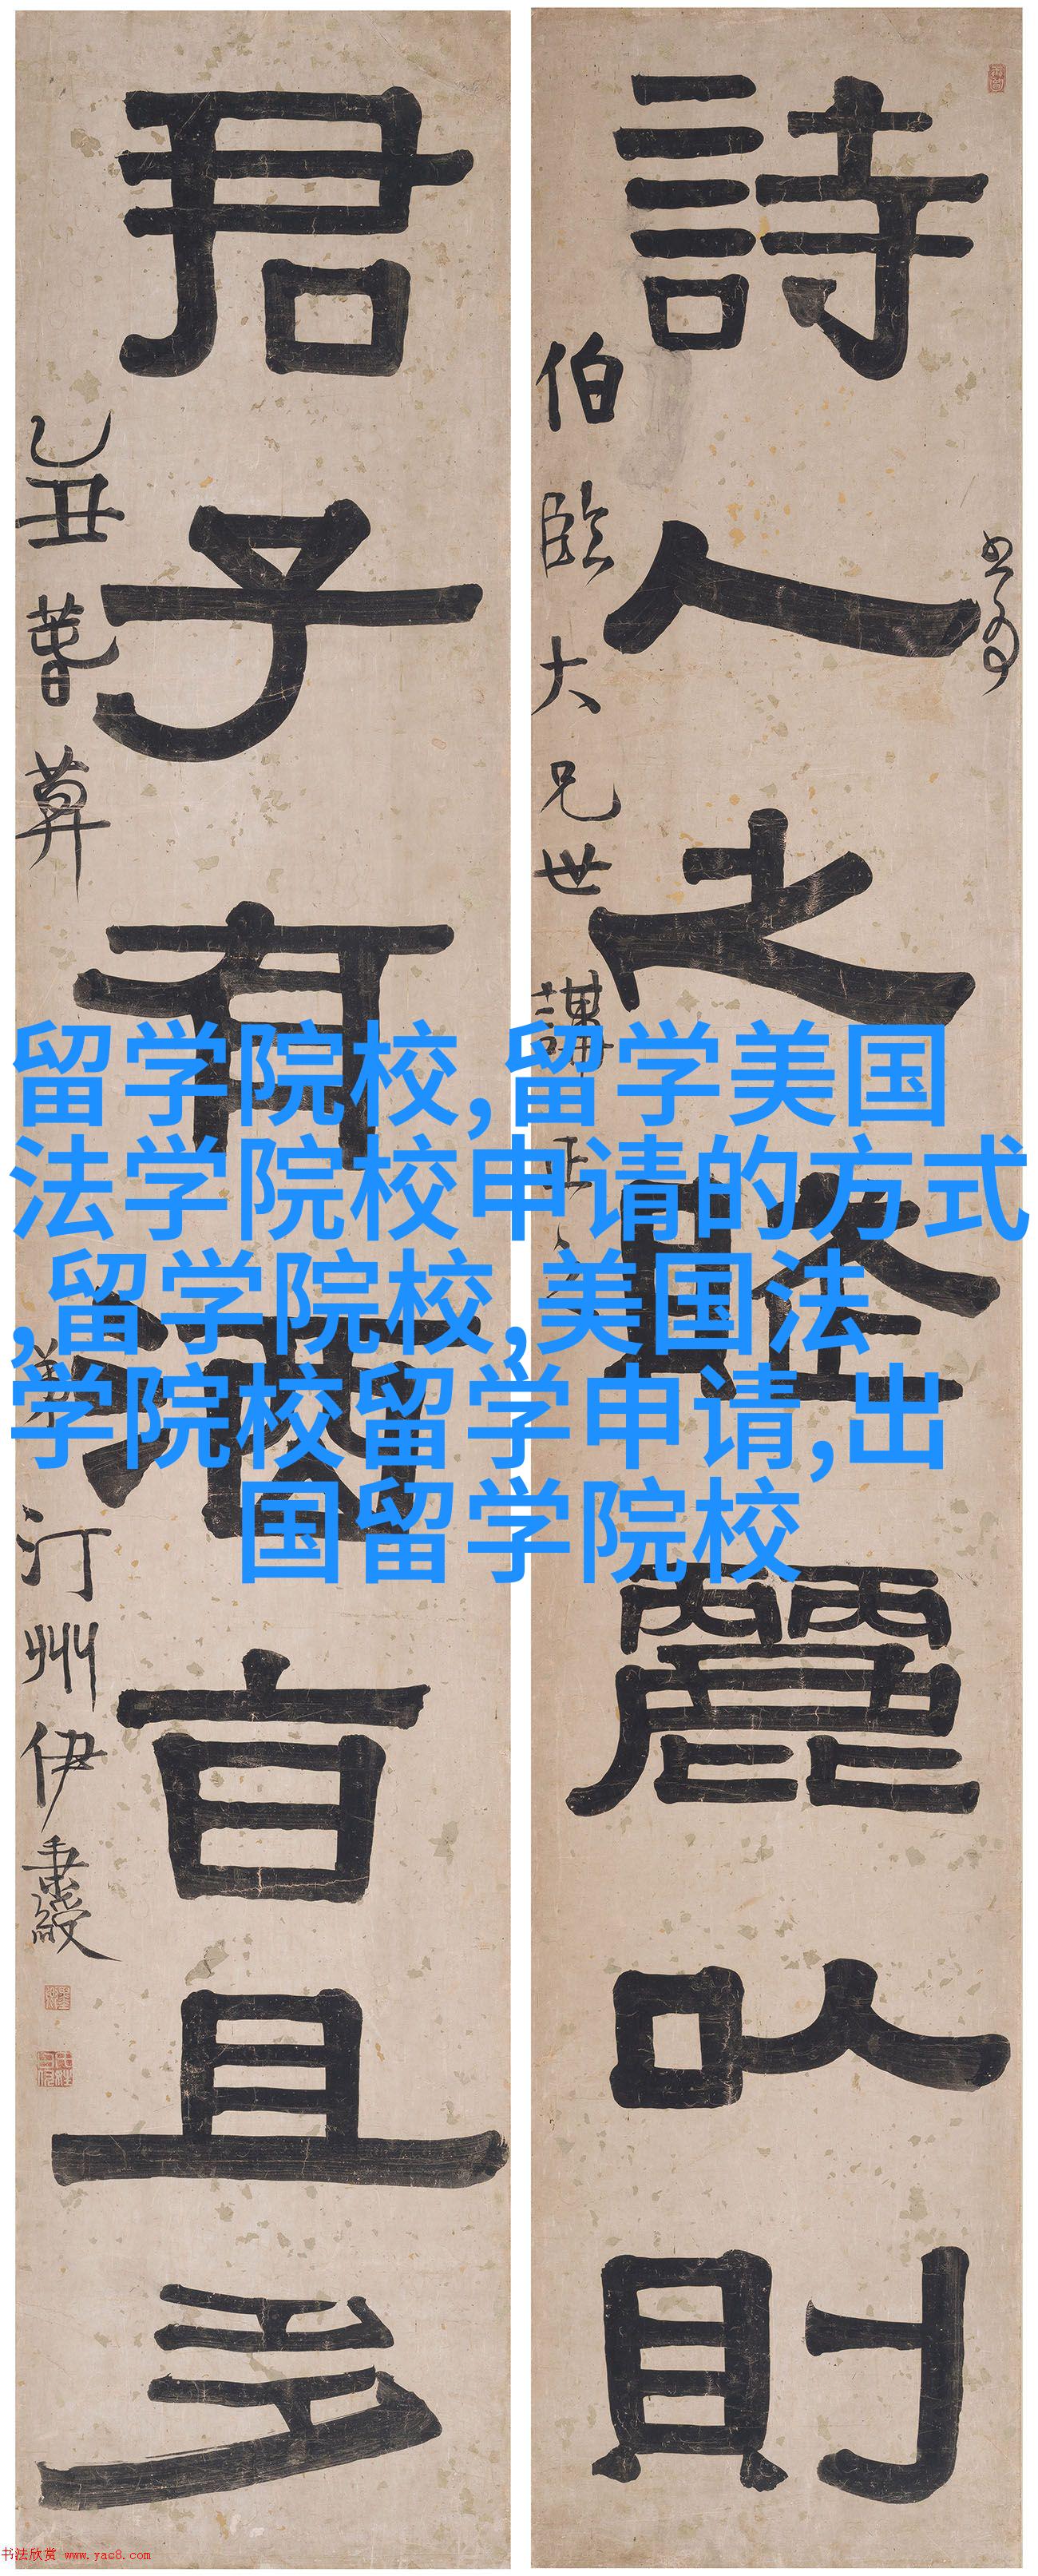 詩人之賦麗以則
伯臨大兄世講正之
君子有酒旨且多
乙丑
弟汀州伊秉綬
留学院校,留学美国
法学院校申请的方式
,留学院校,美国法
学院校留学申请,出
国留学院校
书法欣赏 www.yac8.com